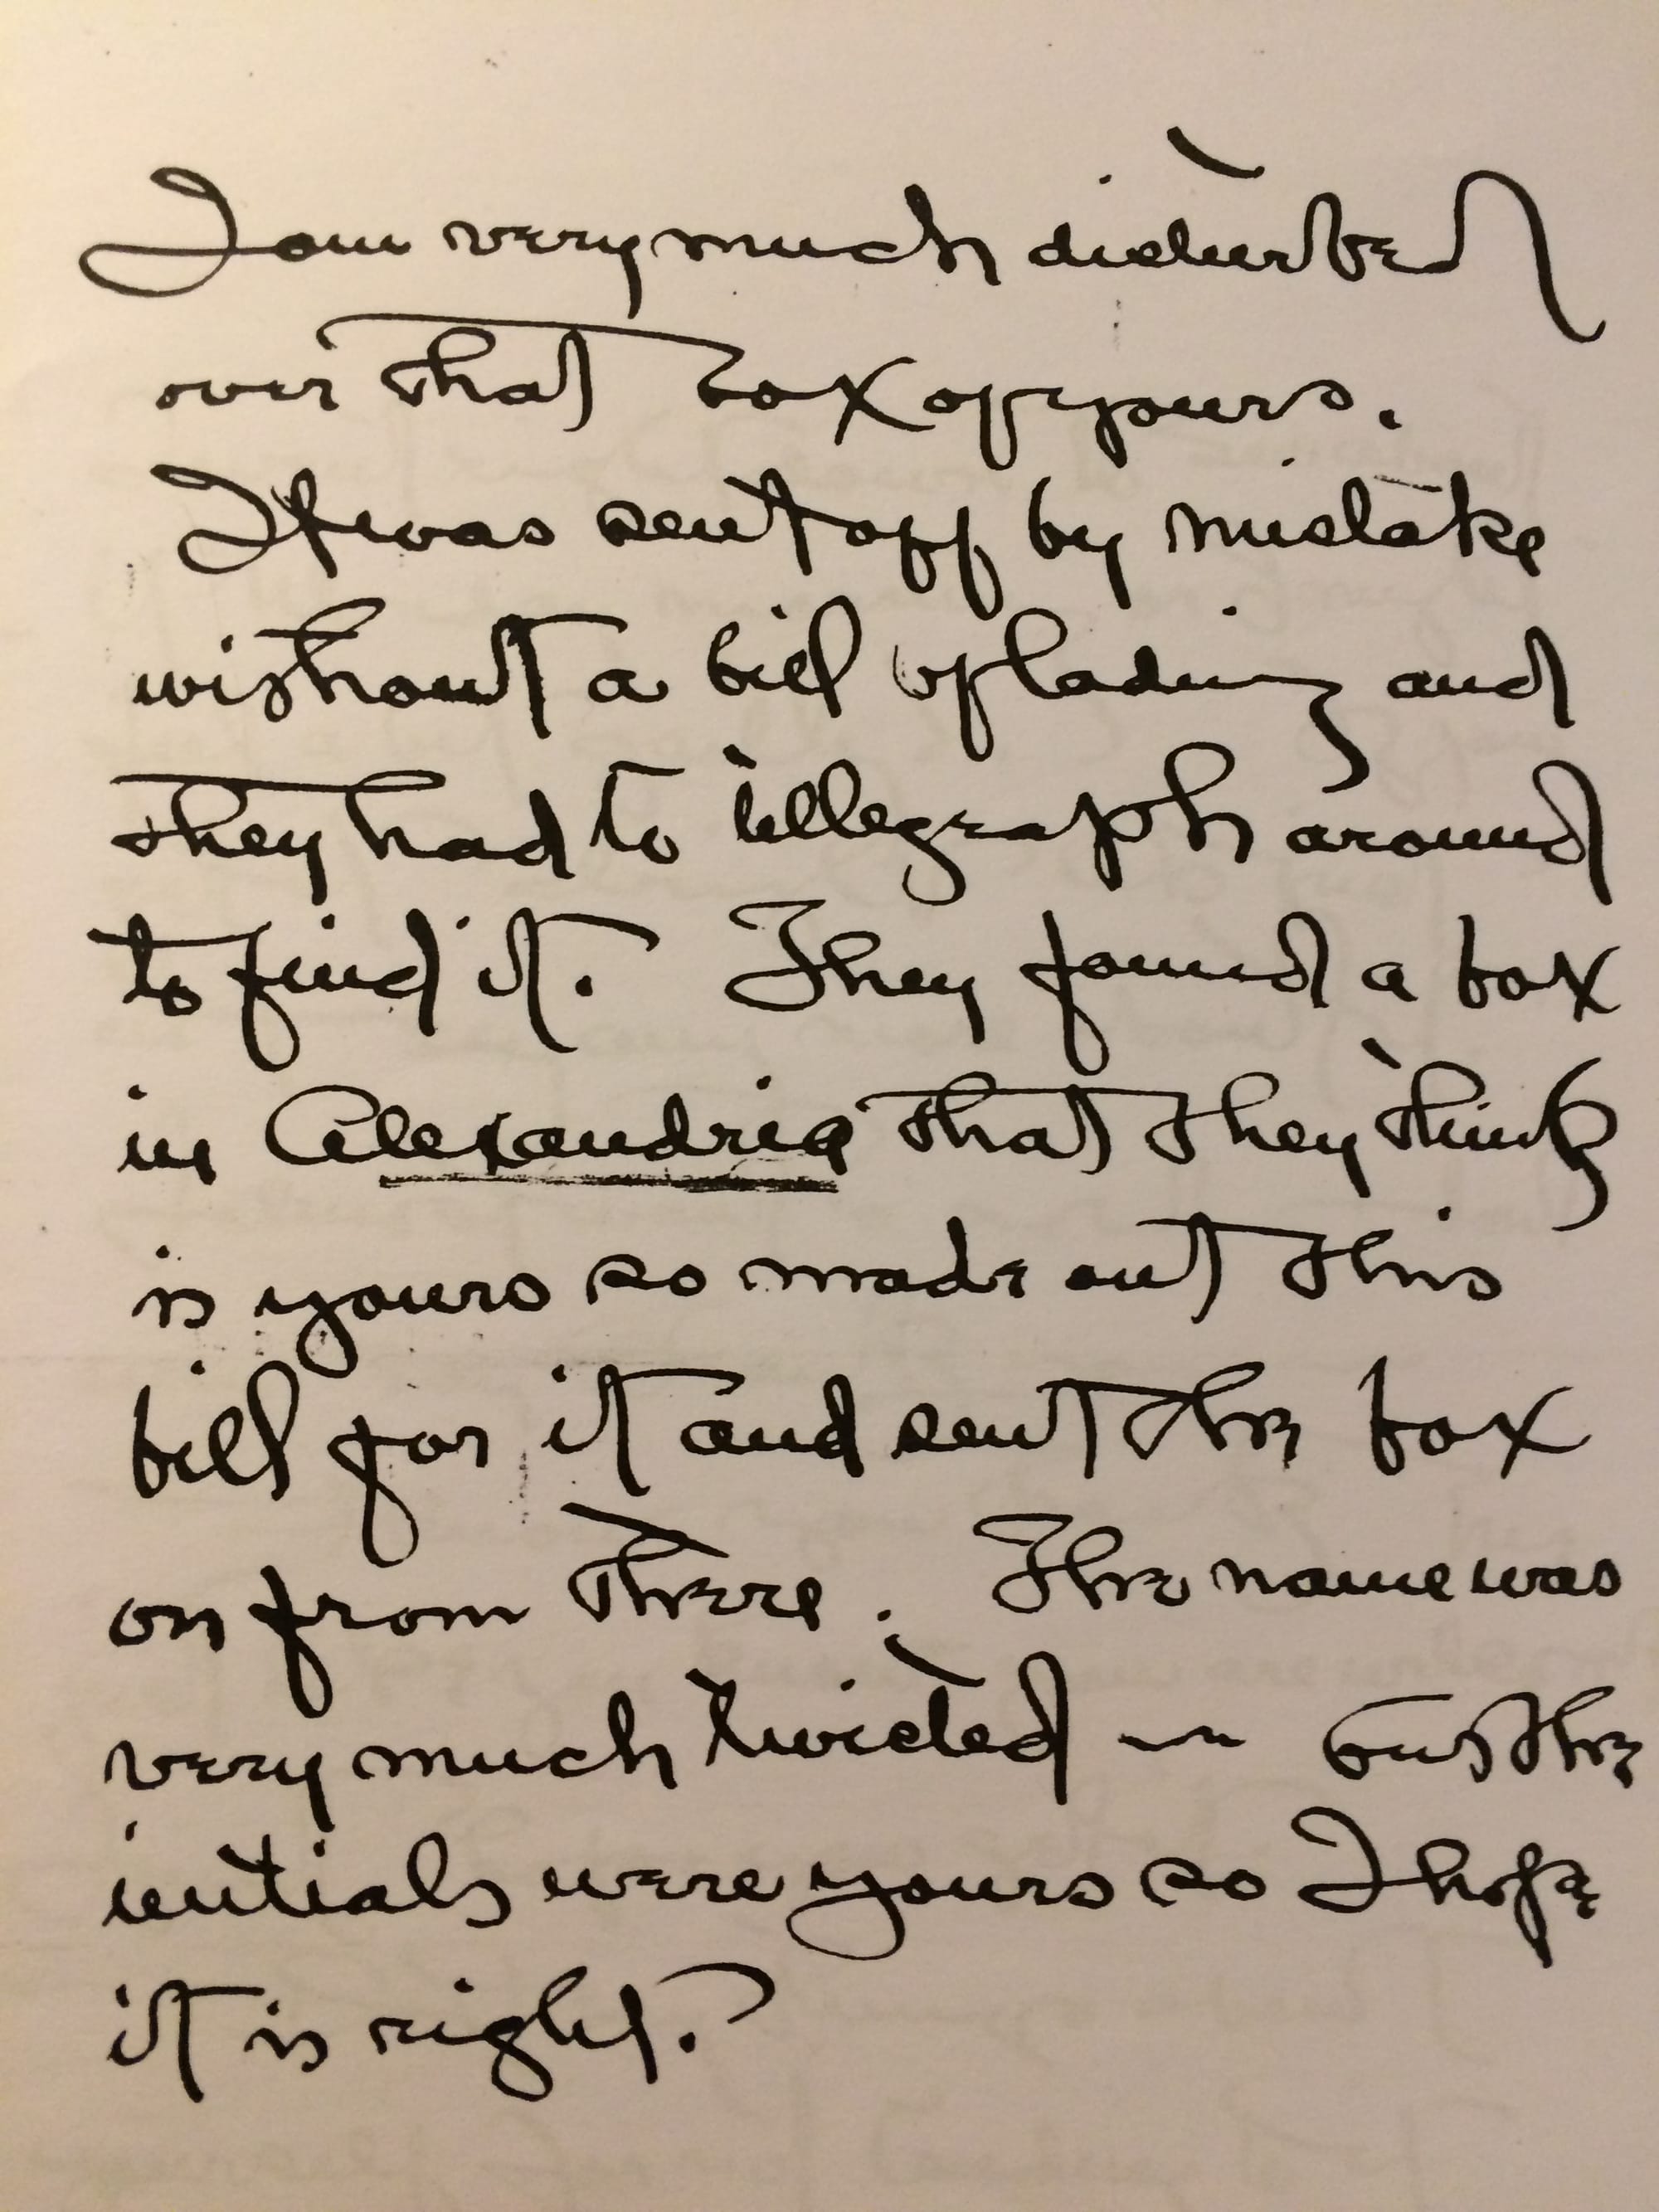 I am very much disturbed
over that box of yours.
It was sent off by mistake
without a bill of lading and
they had to tellegraph around
to find it. They found a box
in Alexandria that they think
is yours so made out this
bill for it and sent the box
on from there. The name was
very much twisted — but the
initials were yours so I hope
it is right.